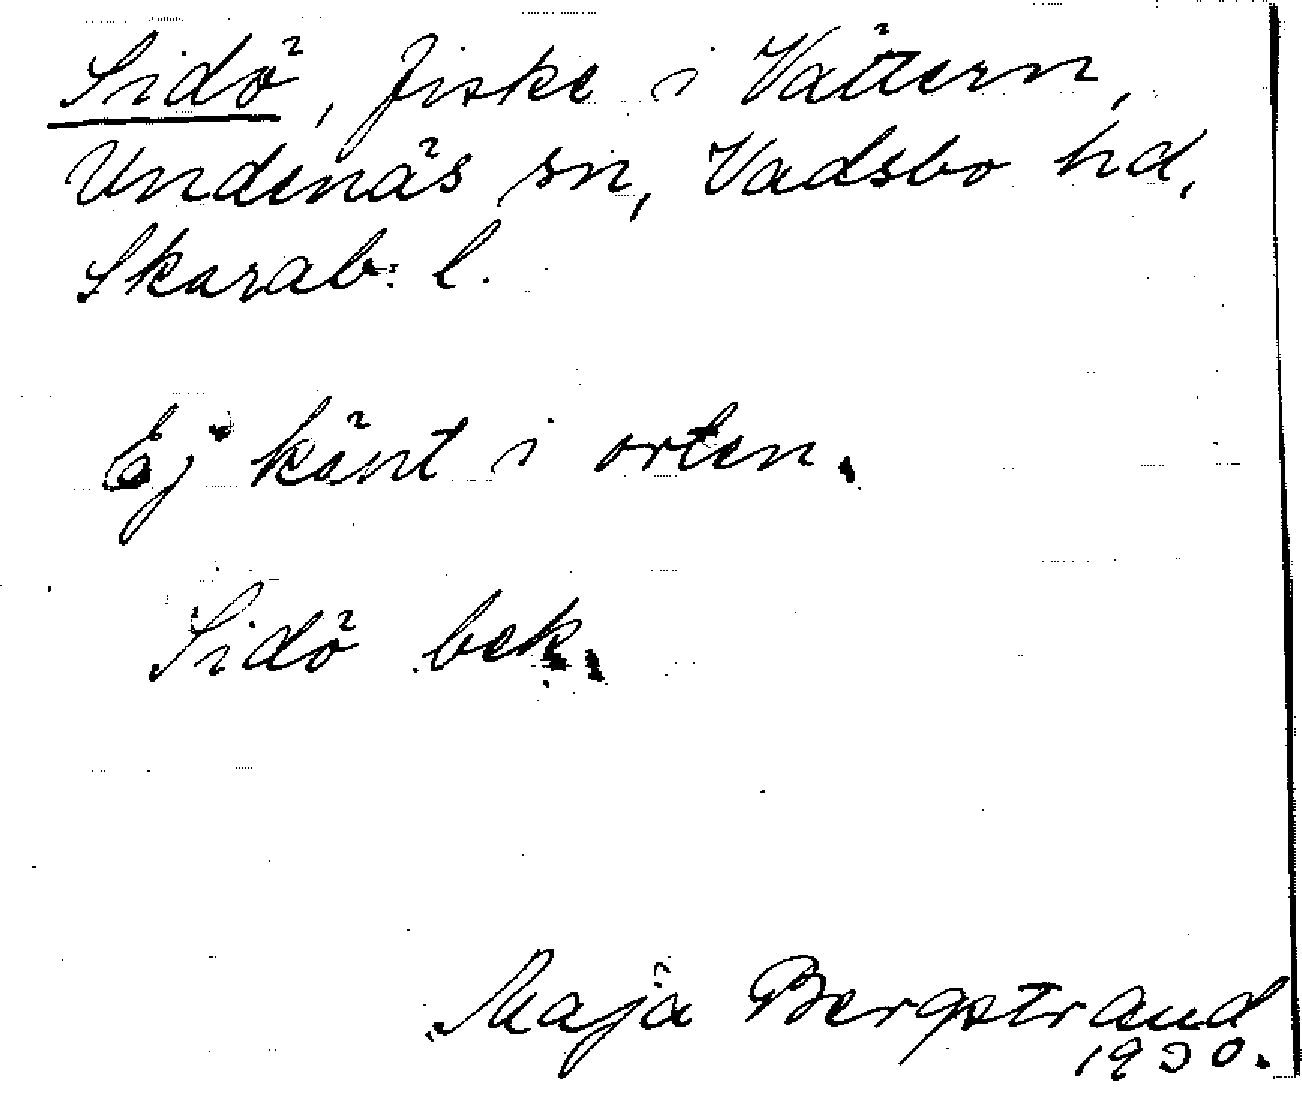 Sidö, fiske i Vättern,
Undenäs sn, Vadsbo hd,
Skarab. l.
Ej känt i orten.
Sidö bek.
Maja Bergstrand
1930.